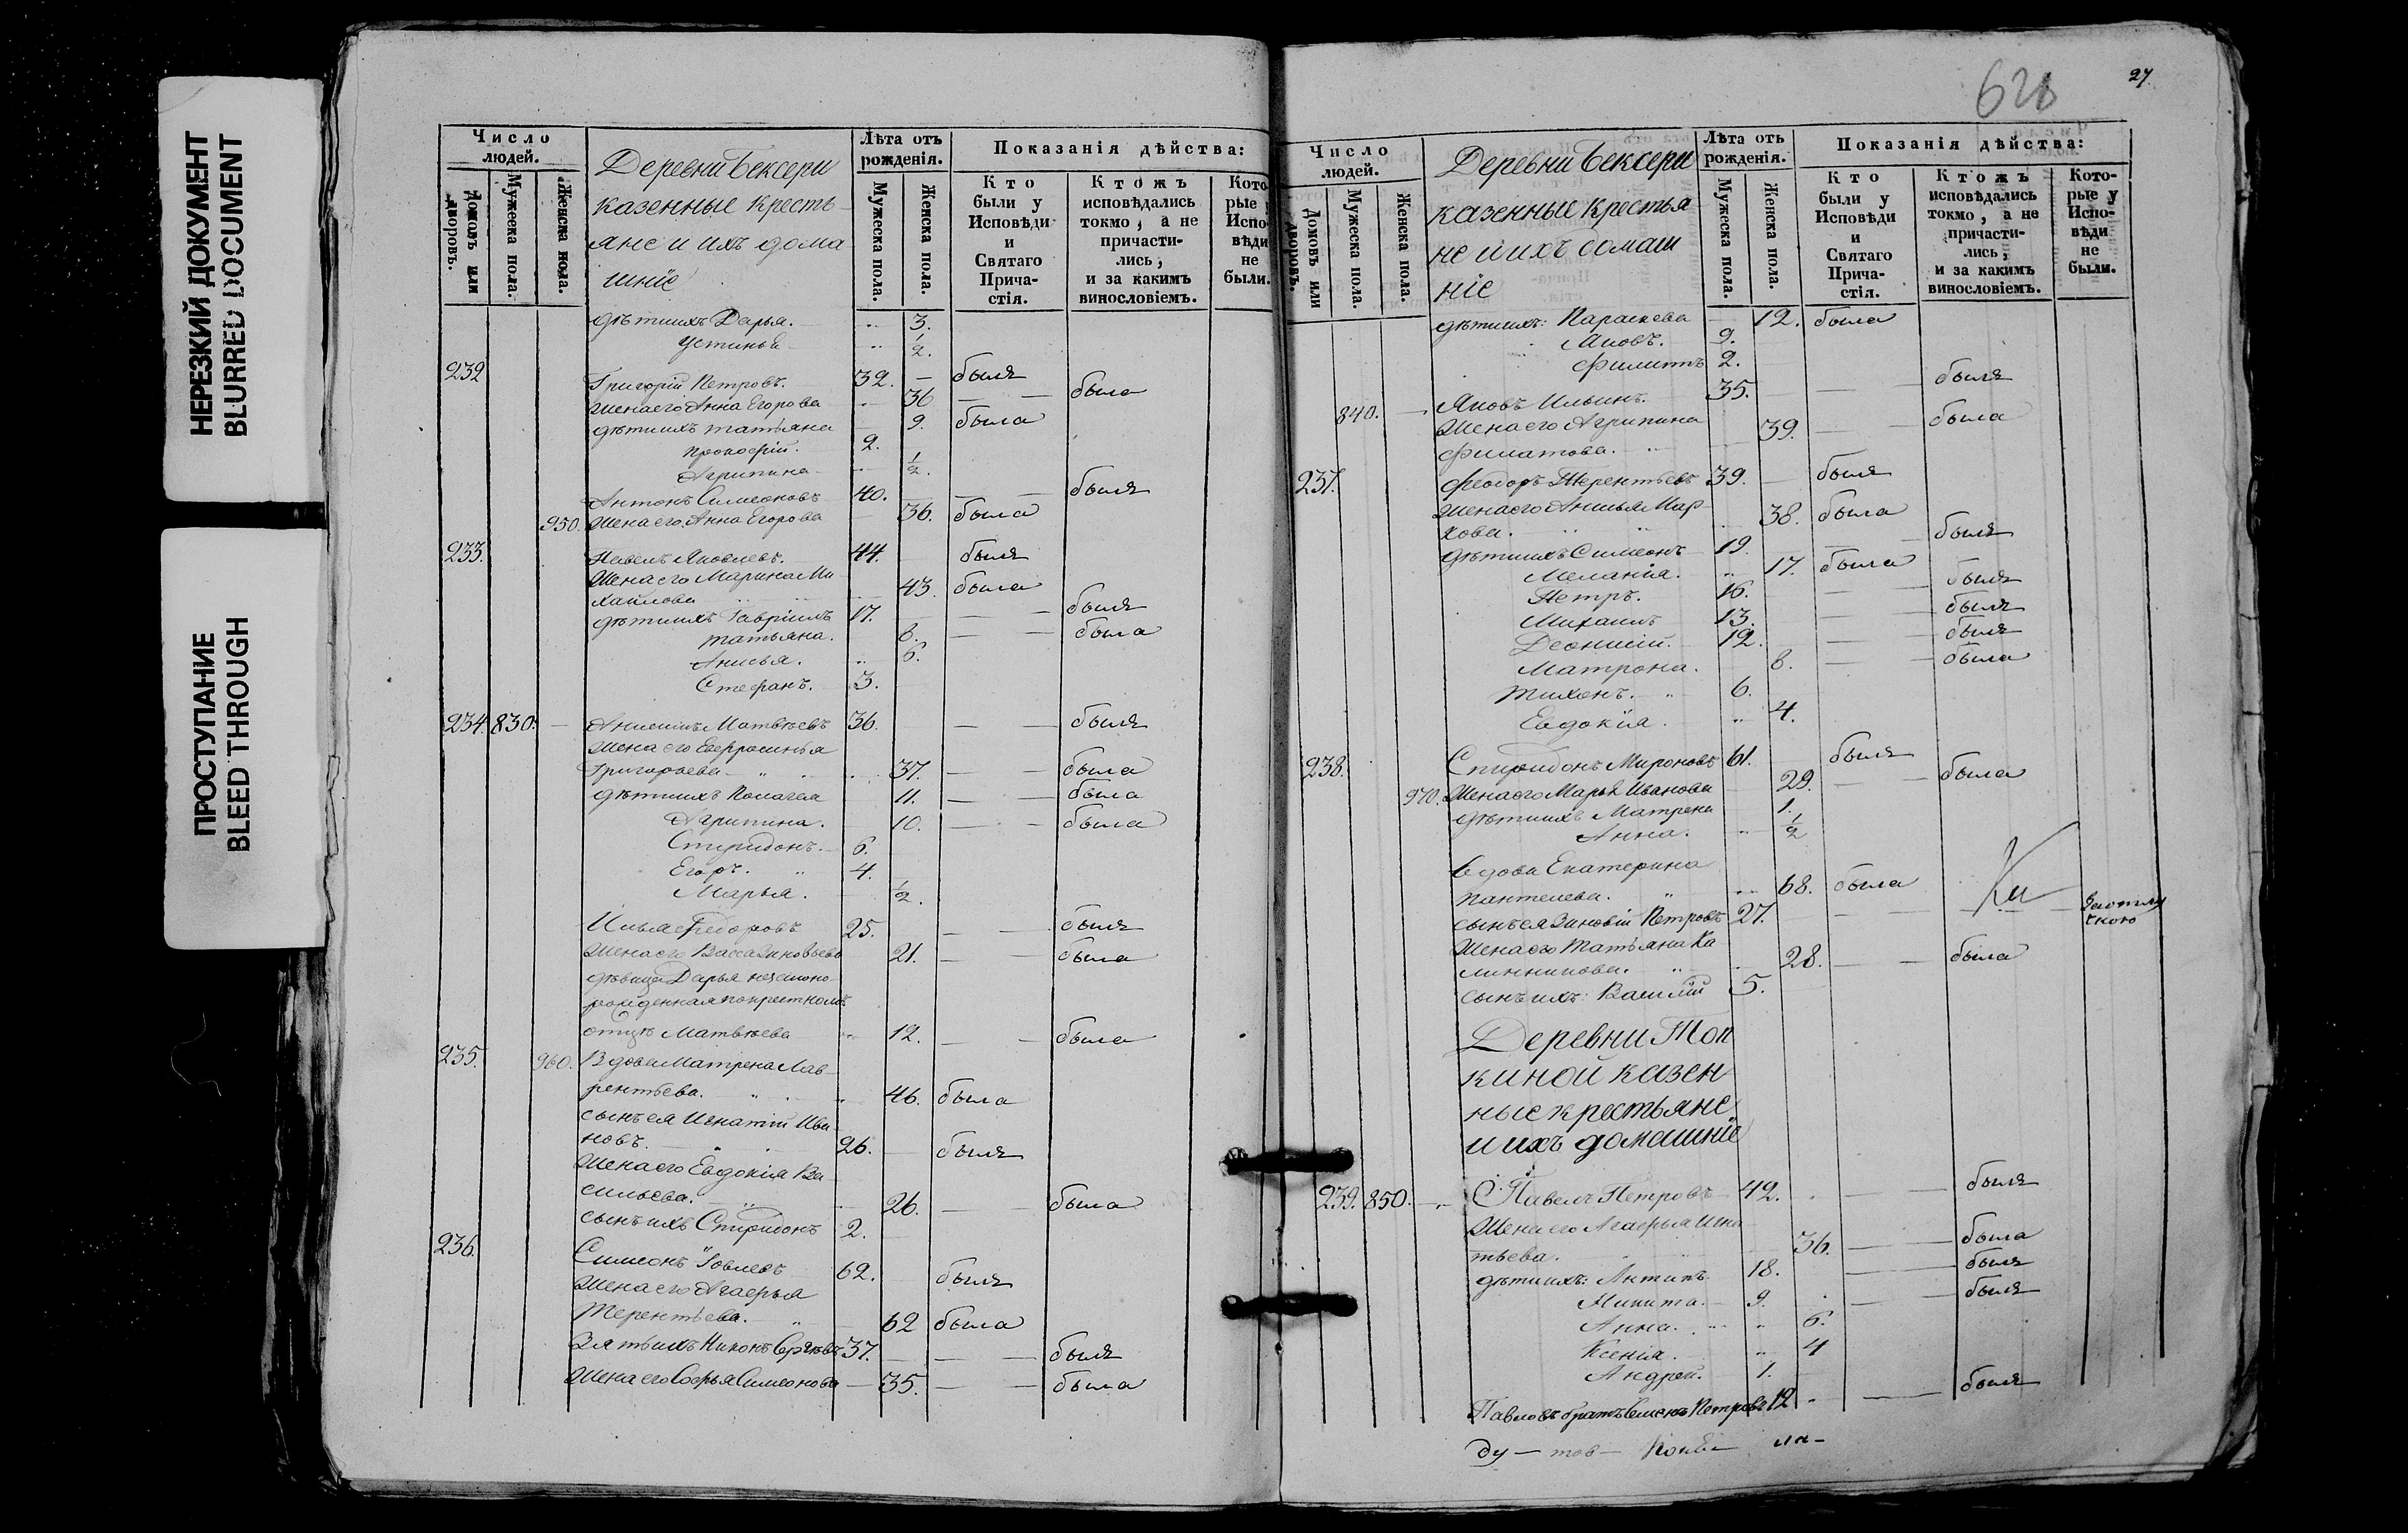 НЕРЕЗКИЙ ДОКУМЕНТ
BLURRED DOCUMENT
ПРОСТУПАНИЕ
BLEED THROUGH
Число людей.
Домовъ или дворовъ.
Мужеска пола.
Женска пола.
Деревни Бексери
казенные кресть
яне и ихъ дома
шніе
Лѣта отъ рожденія.
Мужеска пола.
Женска пола.
Показанія дѣйства:
Кто были у Исповѣди и Святаго Прича-стія.
Ктожъ исповѣдались токмо, а не причасти-лись, и за какимъ винословіемъ.
Кото рые Испо вѣди не были.
дѣти ихъ Дарья. 3.
Устинья 1/2.
232 Григорій Петровъ. 32. — былъ
Жена его Анна Егорова 36 — — была
дѣти ихъ Татьяна 9. была
Прокофій. 2.
Агрипина 1/2.
Антонъ Симеоновъ 40. — — былъ
950. Жена его Анна Егорова 36. была
233. Павелъ Яковлевъ. 44. былъ
Жена его Марина Ми
хайлова 43. была
дѣти ихъ Гавріилъ 17. — былъ
Татьяна. 8. — — была
Анисья. 6.
Стефанъ. 3.
234. 830. — Матвѣевъ 36. — — былъ
Жена его Евфросинья
Григорьева 37. — — была
дѣти ихъ Пелагея 11. — — была
Агрипина. 10. — — была
Спиридонъ. 6.
Егоръ. 4.
Марья. 1/2.
Илья Федоровъ 25. — — былъ
Жена его Васса Зиновьева 21. — — была
дѣвица Дарья незаконо
рожденная по крестному
отцѣ Матвѣева 12. — — была
235. 960. Вдова Матрена Лав
рентьева. 46. была
сынъ ея Игнатій Ива
новъ. 26. — былъ
Жена его Евдокія Ва
сильева. 26. — — была
сынъ ихъ Спиридонъ 2.
236. Симеонъ 62. былъ
Жена его Агафья
Терентьева. 62 была
Зять ихъ Никонъ 37. — — былъ
Жена его Софья Симеонова — 35. — — была
27
Число людей.
Домовъ или дворовъ.
Мужеска пола.
Женска пола.
Деревни Бексери
казенные крестья
не и ихъ домаш
ніе
Лѣта отъ рожденія.
Мужеска пола.
Женска пола.
Показанія дѣйства:
Кто были у Исповѣди и Святаго Прича-стія.
Ктожъ исповѣдались токмо, а не причасти-лись, и за какимъ винословіемъ.
Кото-рые у Испо-вѣди не были.
дѣти ихъ: Параскева 12. была
Яковъ. 9.
Филиппъ 2.
840. — Яковъ Ильинъ. 35. — — былъ
Жена его Агрипина 39. — была
Филатова.
237. Феодоръ Терентьевъ 39. — былъ
Жена его Анисья Мар
кова. 38. была
дѣти ихъ Симеонъ 19. — — былъ
Меланія. 17. была
Петръ. 16. — — былъ
Михаилъ 13. — — былъ
Деонисій. 12. — — былъ
Матрона. 8. — — была
Тихонъ. 6.
Евдокія. 4.
238. Спиридонъ Мироновъ 61. былъ
970. Жена его Марья Иванова 29. — — была
дѣти ихъ Матрена 1.
Анна. 1/2
Вдова Екатерина
Пантелеева. 68. была
сынъ ея Зиновій Петровъ 27. — — —
Жена его Татьяна Ка
линникова. 28. — — была
сынъ ихъ: Василій 5.
Деревни Топ
киной казен
ные крестьяне
и ихъ домашніе
239. 850. — Павелъ Петровъ 42. — — былъ
Жена его Агафья Игна
тьева. 36. — — была
дѣти ихъ: Антипъ 18. — былъ
Никита. 9. — былъ
Анна. 6.
Ксенія. 4
Андрей. 1.
Павловъ братъ Семенъ Петровъ 12 — — былъ